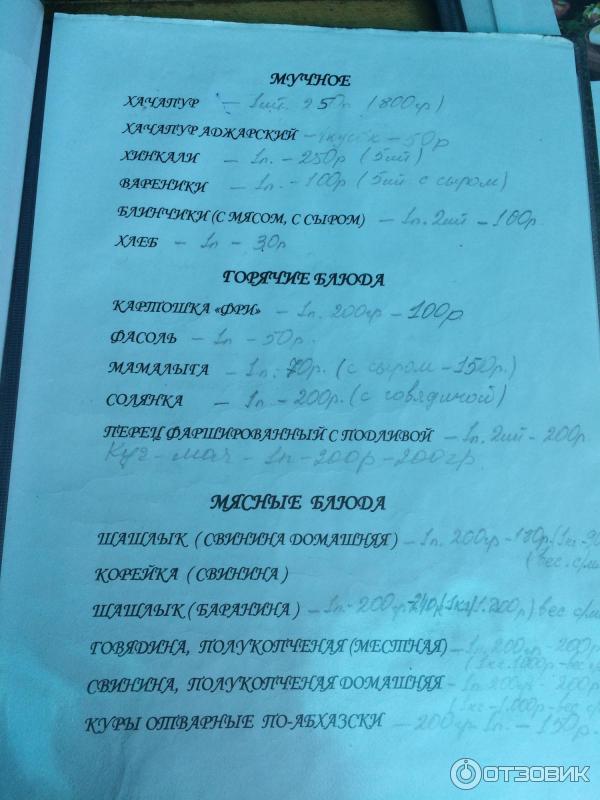 МУЧНОЕ
ХАЧАПУР – 1шт. 250р (800гр)
ХАЧАПУР АДЖАРСКИЙ – кусок – 50р
ХИНКАЛИ – 1п. – 250р (5шт)
ВАРЕНИКИ – 1п. – 100р (5шт с сыром)
БЛИНЧИКИ (С МЯСОМ, С СЫРОМ) – 1п. 2шт – 100р.
ХЛЕБ – 1п – 30р
ГОРЯЧИЕ БЛЮДА
КАРТОШКА «ФРИ» – 1п. 200гр – 100р
ФАСОЛЬ – 1п – 50р.
МАМАЛЫГА – 1п. 70р. (с сыром – 150р.)
СОЛЯНКА – 1п. – 200р. (с говядиной)
ПЕРЕЦ ФАРШИРОВАННЫЙ С ПОДЛИВОЙ – 1п. 2шт – 200р.
Куч – мач – 1п – 200р – 200гр.
МЯСНЫЕ БЛЮДА
ШАЩЛЫК (СВИНИНА ДОМАШНЯЯ) – 1п. 200гр – 180р. (1кг – 90
(вес. с/м
КОРЕЙКА (СВИНИНА)
ШАЩЛЫК (БАРАНИНА) – 1п – 200гр – 240р (1кг 1.200р) вес с/м
ГОВЯДИНА, ПОЛУКОПЧЕНАЯ (МЕСТНАЯ) – 1п. 200гр – 200р
(1кг. 1.000р – вес
СВИНИНА, ПОЛУКОПЧЕНАЯ ДОМАШНЯЯ – 1п. 200гр. 200р
(1кг – 1.000р – вес с/
КУРЫ ОТВАРНЫЕ ПО-АБХАЗСКИ – 200гр – 1п. – 150р.
ОТЗОВИК